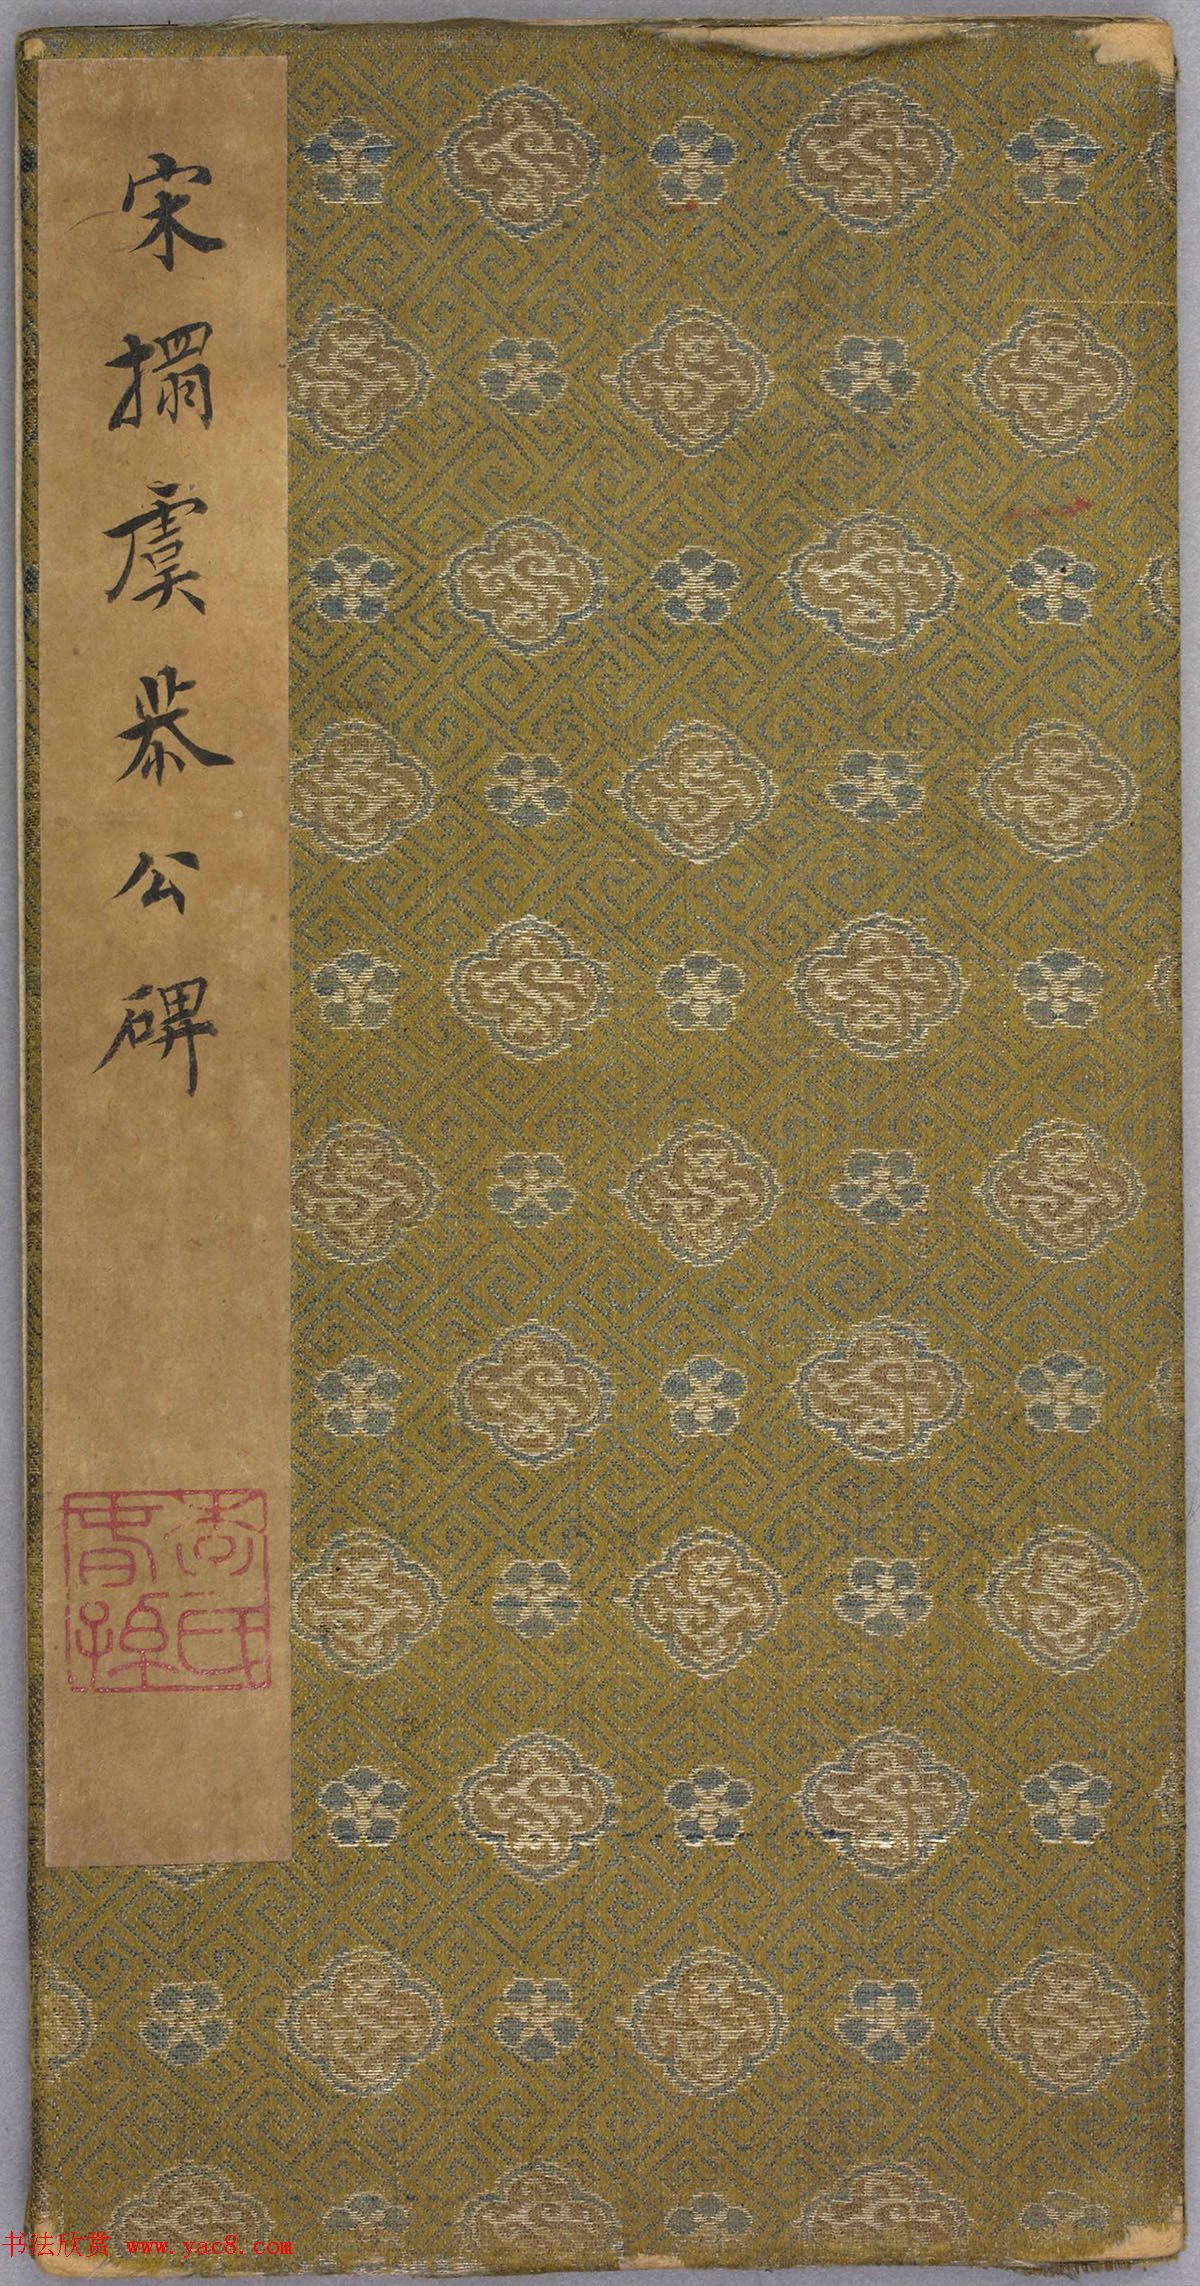 宋搨虞恭公碑
書法欣赏 www.yac8.com